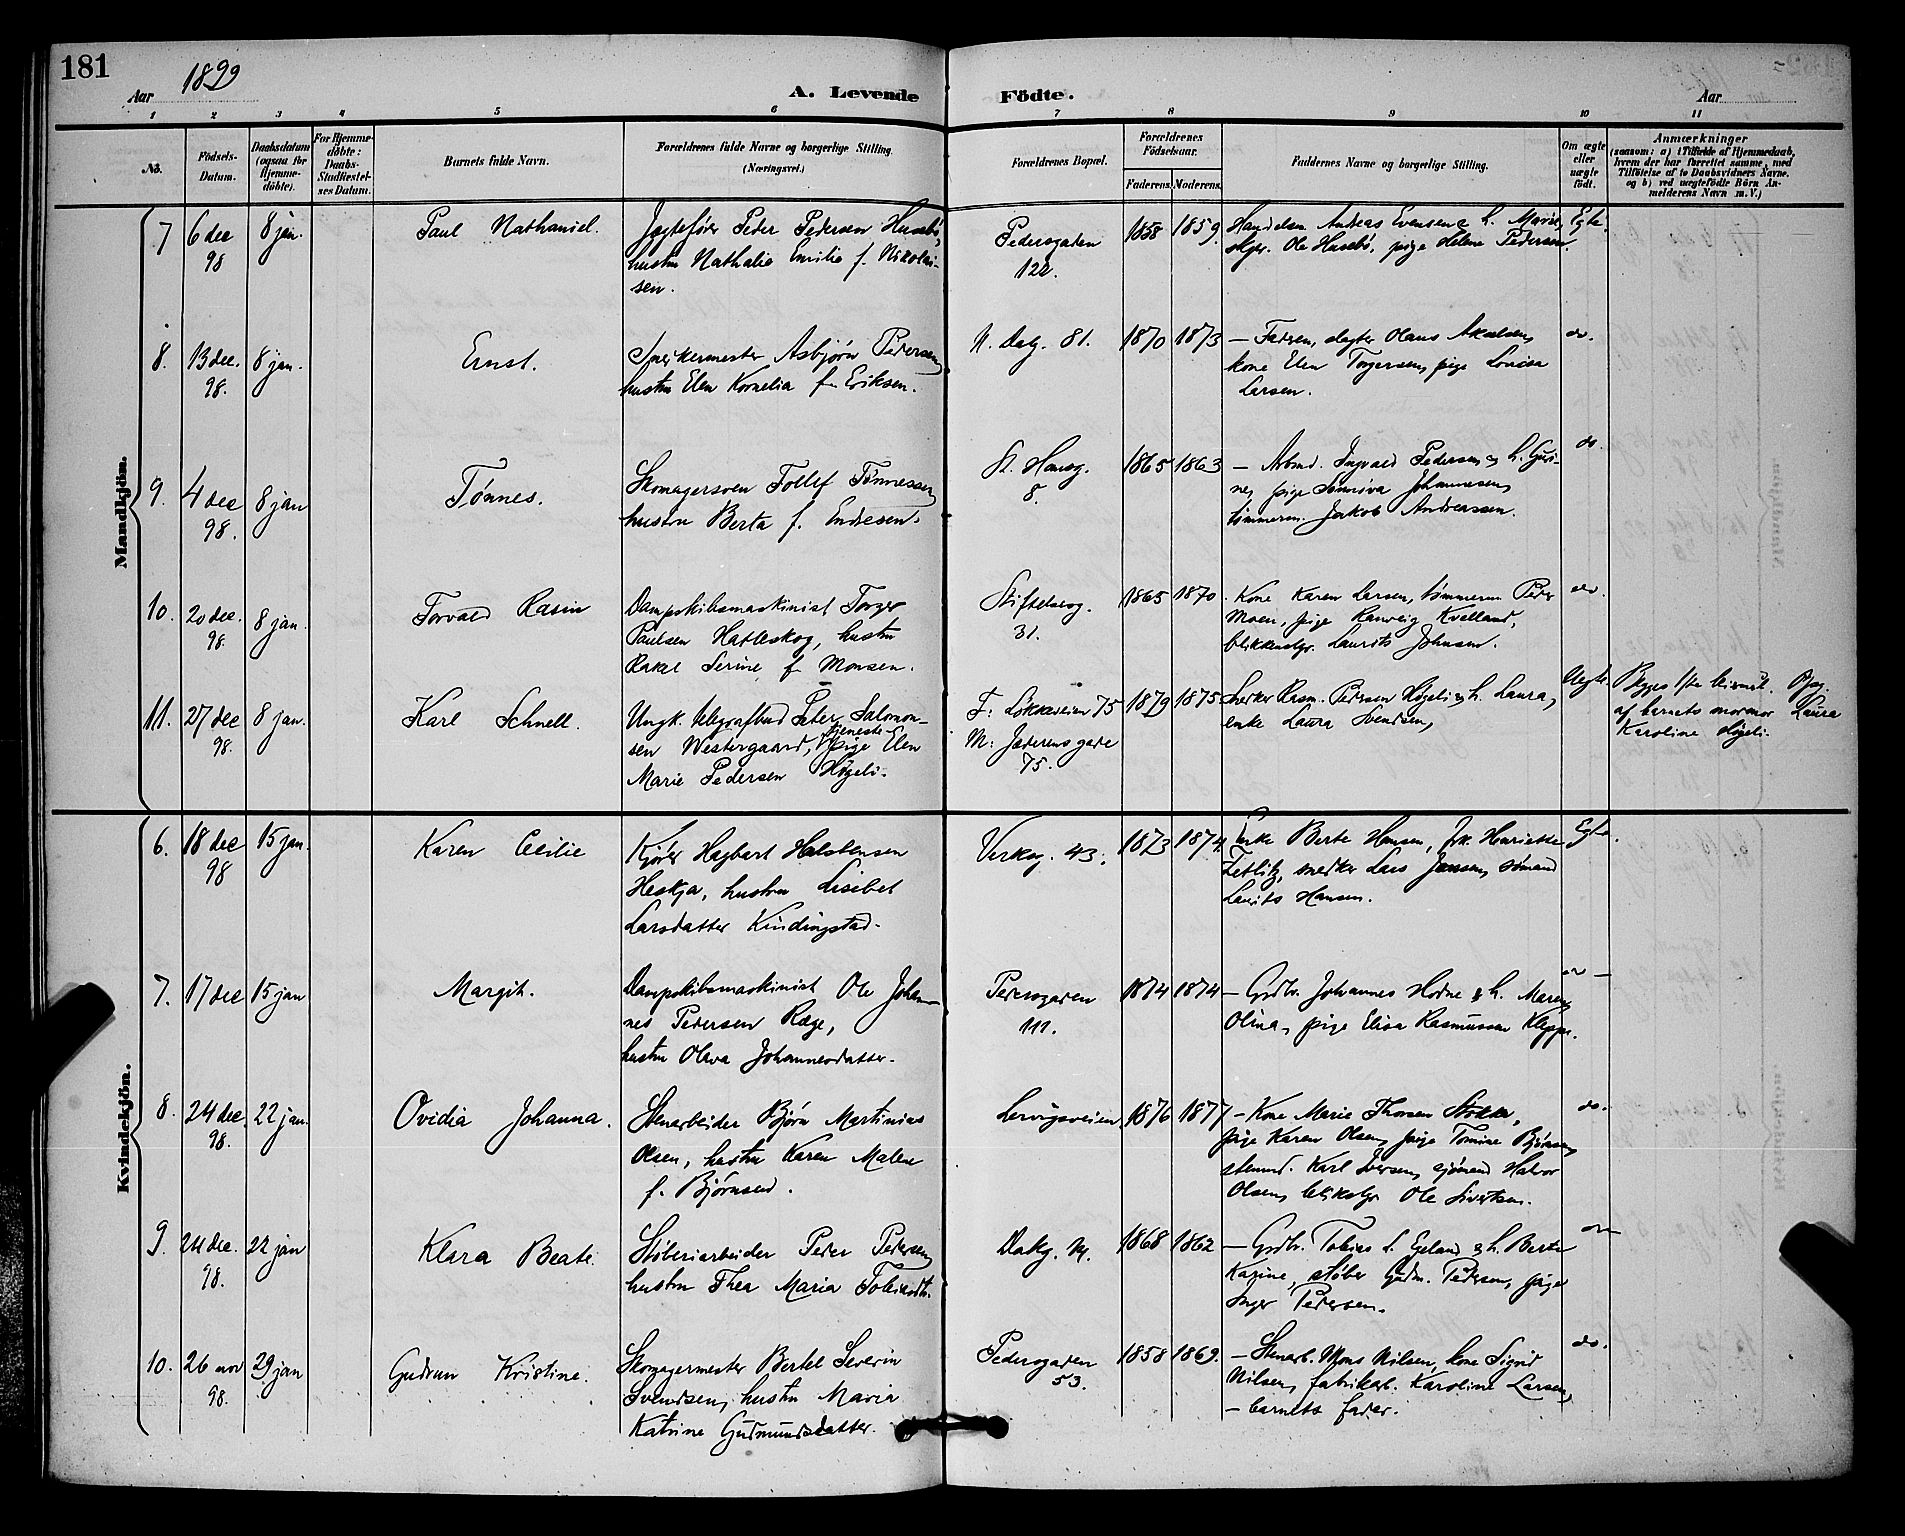 181
Aar 1899
A. Levende Födte.
Aar
1 2 3 4 5 6 7 8 9 10 11
No.
Födsels-Datum.
Daabsdatum (ogsaa for Hjemme-döbte).
For Hjemme-döbte: Daabs-Stadfæstel-ses Datum.
Barnets fulde Navn.
Forældrenes fulde Navne og borgerlige Stilling. (Næringsvei.)
Forældrenes Bopæl.
Forældrenes Födselsaar.
Faderens. Moderens.
Faddernes Navne og borgerlige Stilling.
Om ægte eller uægte födt.
Anmærkninger
(saasom: a) i Tilfælde af Hjemmedaab,
hvem der har forrettet samme, med
Tilföielse af to Daabsvidners Navne.
og b) ved uægtefödte Börn An-
melderens Navn m. V.)
Mandkjön.
7 6 dec 98 8 jan. Paul Nathaniel.
Jægtefører Peder Pedersen Husebø,
hustru Nathalie Emilie f. Nikolai-
sen.
Pedersgaden 122.
1858 1859.
Handelsm. Andreas Evensen & h. Marie,
Ole Husebø, pige Helene Pedersen.
Egte.
8. 13 dec. 98. 8 jan. Ernst.
Snekkermester Asbjørn Pedersen,
hustru Elen Kornelia f. Eriksen.
N. Dalg. 81.
1870 1873
– Faderen, slagter Olaus Akselsen,
kone Elen Torgersen, pige Lovisa
Larsen.
do.
9. 4 dec 98. 8 jan Tønnes.
Skomagersven Tollef Tønnessen,
hustru Berta f. Endresen.
St. Hansg. 8.
1865 1863
– Arbmd. Ingvald Pedersen & h. Guri-
ne, pige Sønnøva Johannesen,
tømmerm. Jakob Andreassen.
do.
10. 20 dec. 98. 8 jan. Torvald Rasin
Dampskibsmaskinist Torger
Paulsen Hatleskog, hustru
Rakel Serine f. Monsen.
Stiftelsesg. 31.
1865 1870
Kone Karen Larsen, tømmerm Peder
Moen, pige Ranveig Kvelland,
blikkenslgr. Laurits Johnsen.
do.
11. 27 dec 98. 8 jan. Karl Schnell.
Ungk. telegrafbud Peter Salomon-
sen Westergaard, tjeneste-
pige Elen
Marie Pedersen Høgeli.
F: Løkkeveien 75
M: Jæderens gade
75.
1879 1875
Snekker Rasm. Pedersen Høgeli & h. Laura,
enke Laura Svendsen,
Uegte.
Begges 1ste leiermål.
af barnets mormor Laura
Karoline Høgeli.
Kvindekjön.
6. 18 dec 98 15 jan. Karen Cecilie
Kjører Hagbart Halstensen
Heskja, hustru Lisebet
Larsdatter Kindingstad.
Verksg. 43.
1873 1874
Enke Berte Hansen, frk. Henriette
Zetlitz, snekker Lars Jonsen, sømand
Laurits Hansen.
Egte.
7. 17 dec 15 jan Margit.
Dampskibsmaskinist Ole Johan-
nes Pedersen Ræge,
hustru Olava Johannesdatter.
Pedersgaden 111.
1874 1874
– Grdbr. Johannes Hodne & h. Maren
Olina, pige Elisa Rasmussen Kleppe.
do –
8. 24 dec. 98. 22 jan. Ovidia Johanna.
Stenarbeider Bjørn Martinius
Olsen, hustru Karen Malene
f. Bjørnsen.
Lervigsveien.
1876 1877
– Kone Marie Thorsen Stokka,
pige Karen Olsen, pige Tomine Bjørnsen,
stenmd. Karl Iversen, sjømand Halvor
Olsen, blikslgr. Ole Sivertsen.
do.
9. 24 dec. 98. 22 jan Klara Beate.
Støberiarbeider Peder Pedersen,
hustru Thea Maria Tobiasdtr.
Dalg. N.
1868 1862
– Grdbr. Tobias L. Egeland & h. Berte
Karine, støber Gudm. Pedersen, pige
Inger Pedersen.
do
10. 26 nov 98. 29 jan Gudrun Kristine.
Skomagermester Bertel Severin
Svendsen, hustru Maria
Katrine Gudmundsdatter.
Pedersgaden 53.
1858 1869.
– Stenarb. Mons Nilsen, kone Sigrid
Nilsen, fabrikarb. Karoline Larsen,
– barnets fader.
do.